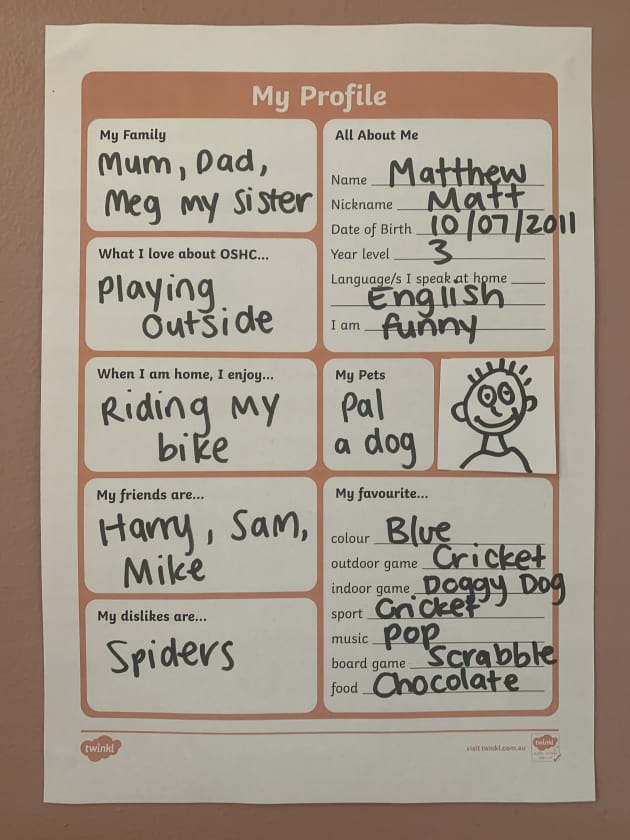 My Profile
My Family
Mum, Dad,
Meg my sister
What I love about OSHC...
Playing
Outside
When I am home, I enjoy...
Riding My
bike
My friends are...
Harry, Sam,
Mike
My dislikes are...
Spiders
All About Me
Name Matthew
Nickname Matt
Date of Birth 10/07/2011
Year level 3
Language/s I speak at home
English
I am funny
My Pets
Pal
a dog
My favourite...
colour Blue
outdoor game Cricket
indoor game Doggy Dog
sport Cricket
music pop
board game Scrabble
food Chocolate
twinkl
visit twinkl.com.au
twinkl